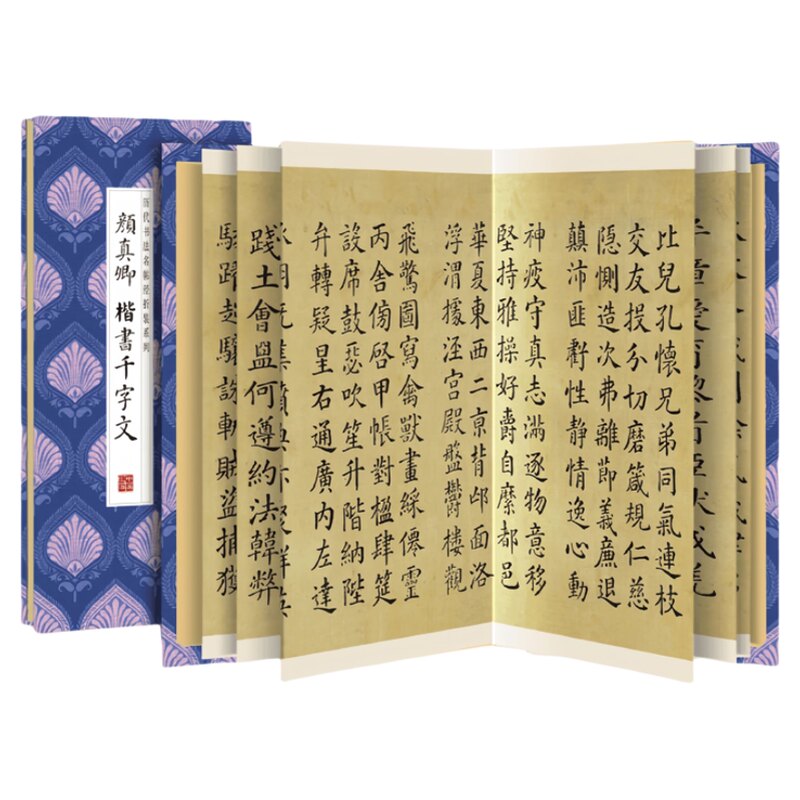 历代书法名帖经折装系列
顔真卿 楷書千字文
比兒孔懷兄弟同氣連枝
交友投分切磨箴規仁慈
隱惻造次弗離節義廉退
顛沛匪虧性靜情逸心動
神疲守真志滿逐物意移
堅持雅操好爵自縻都邑
華夏東西二京背邙面洛
浮渭據涇宮殿盤鬱楼觀
飛驚圖寫禽獸畫綵僊靈
丙舍傍啓甲帳對楹肆筵
設席鼓瑟吹笙升階納陛
弁轉疑星右通廣內左達
踐土會盟何遵約法韓弊
駭躍超驤誅斬賊盜捕獲